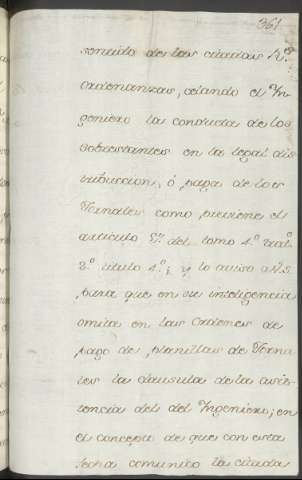 361
sentido de las citadas R.s
ordenanzas, celando el In-
geniero la conducta de los
sobrestantes en la legal dis
tribucion, ó paga de los
Jornales como previene el
articulo 5.º del tomo 4.º trat.º
2.º titulo 4.º; y lo aviso a V.S.
para que en su inteligencia
omita en las ordenes de
pago de planillas de Jorna
les la clausula de la asis-
tencia del del Ingeniero; en
el concepto de que con esta
fecha comunico la citada